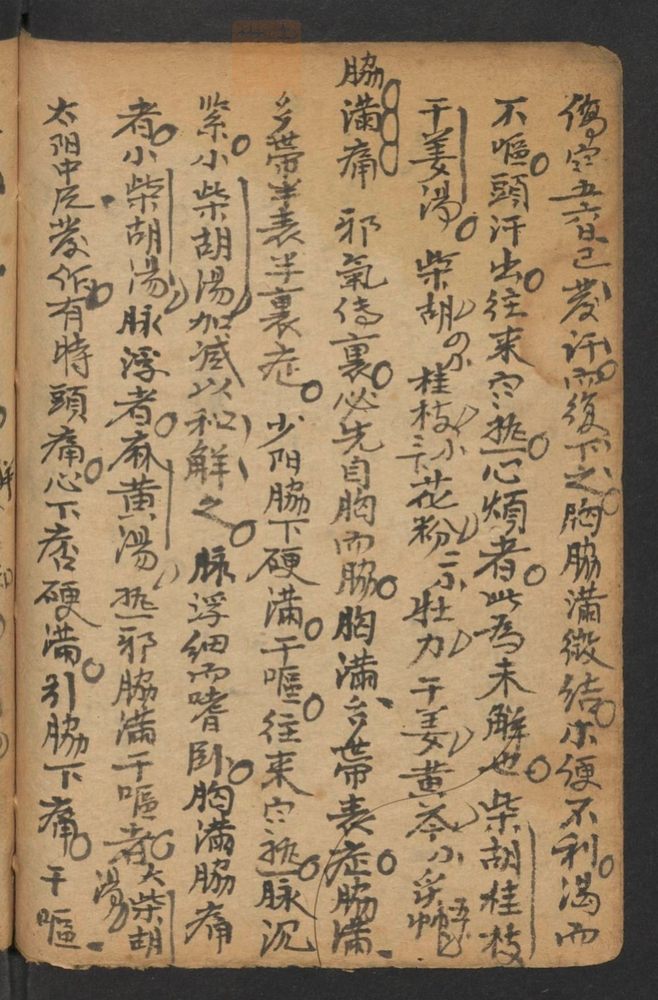 傷寒五六日已發汗而復下之胸脇滿微結小便不利渴而
不嘔頭汗出往來寒熱心煩者此為未解也柴胡桂枝
干姜湯 柴胡 桂枝 花粉 牡力 干姜 黄芩
脇滿痛 邪氣傳裏必先自胸而脇胸滿多带表症脇滿
多带半表半裏症 少阳脇下硬滿干嘔往來寒熱脉沉
紧小柴胡湯加减以和解之 脉浮細而嗜卧胸滿脇痛
者小柴胡湯脉浮者麻黄湯 热邪脇滿干嘔者大柴胡
湯
太阳中风發作有時頭痛心下痞硬滿引脇下痛干嘔